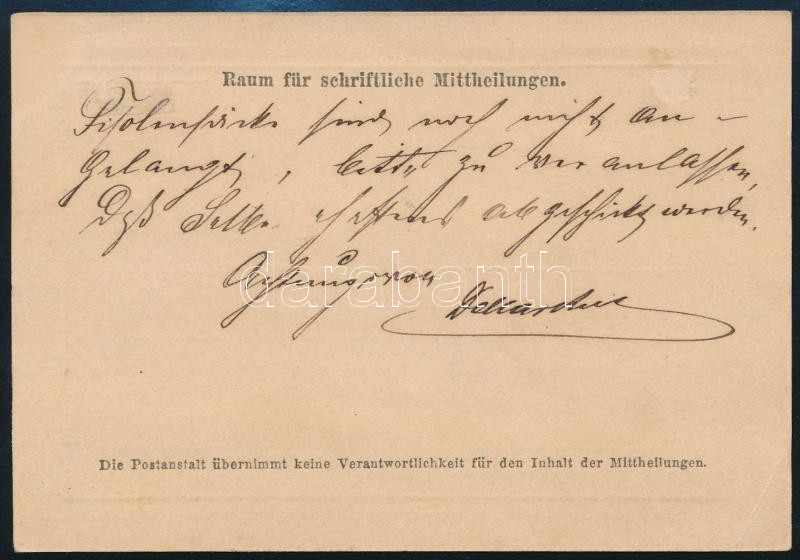 Raum für schriftliche Mittheilungen.
Fisolensäcke sind noch nicht an-
gelangt, bitte zu veranlassen,
Daß Selbe ehestens abgeschickt werden.
Achtungsvoll
darabanth
Die Postanstalt übernimmt keine Verantwortlichkeit für den Inhalt der Mittheilungen.